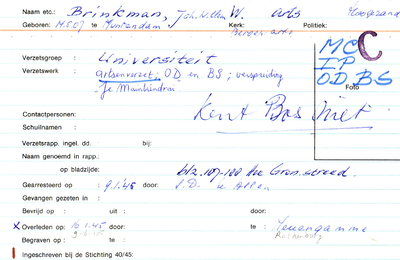 Naam etc.: Brinkman, Joh. Willem W. arts Hoogezand
Geboren: te Muntendam Kerk: Politiek:
Beroep: arts
Verzetsgroep: Universiteit
Verzetswerk: artsenverzet; OD en BS; verspreiding
"Je Maintiendrai"
MC
C
IP
OD BS
Foto
Contactpersonen: Kent Bos niet
Schuilnaam:
Verzetsrapp. ingel. dd. bij:
Naam genoemd in rapp.:
op bladzijde: blz. 107-108
Gearresteerd op: 9.1.45 door: S.D. te Assen
Gevangen gezeten in:
Bevrijd op: uit: door:
X Overleden op: 16.1.45 door: te: Neuengamme
Begraven op: te:
Ingeschreven bij de Stichting 40/45: